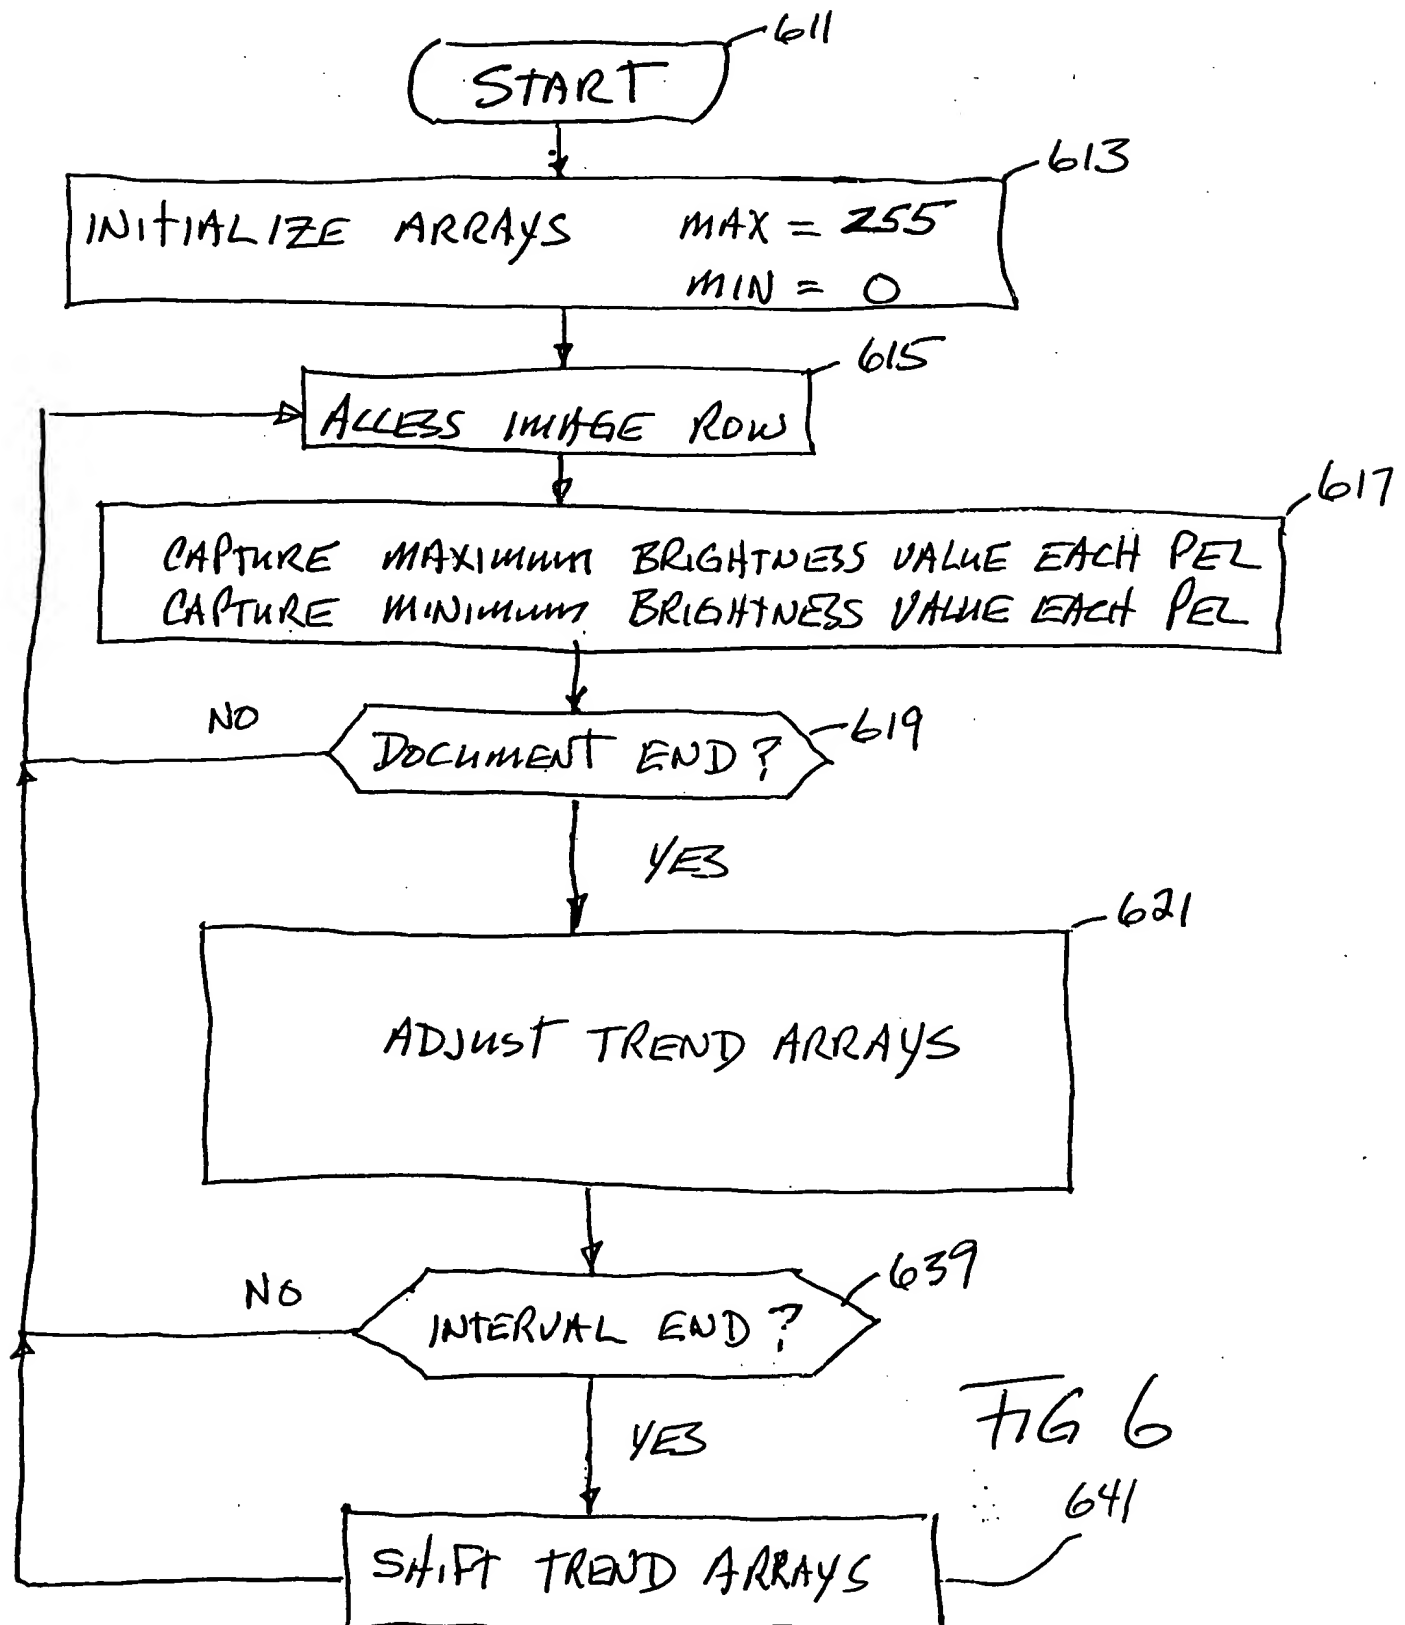 611
START
613
INITIALIZE ARRAYS MAX = 255
MIN = 0
615
ACCESS IMAGE ROW
617
CAPTURE MAXIMUM BRIGHTNESS VALUE EACH PEL
CAPTURE MINIMUM BRIGHTNESS VALUE EACH PEL
NO
DOCUMENT END?
619
YES
621
ADJUST TREND ARRAYS
639
NO
INTERVAL END?
FIG 6
YES
641
SHIFT TREND ARRAYS